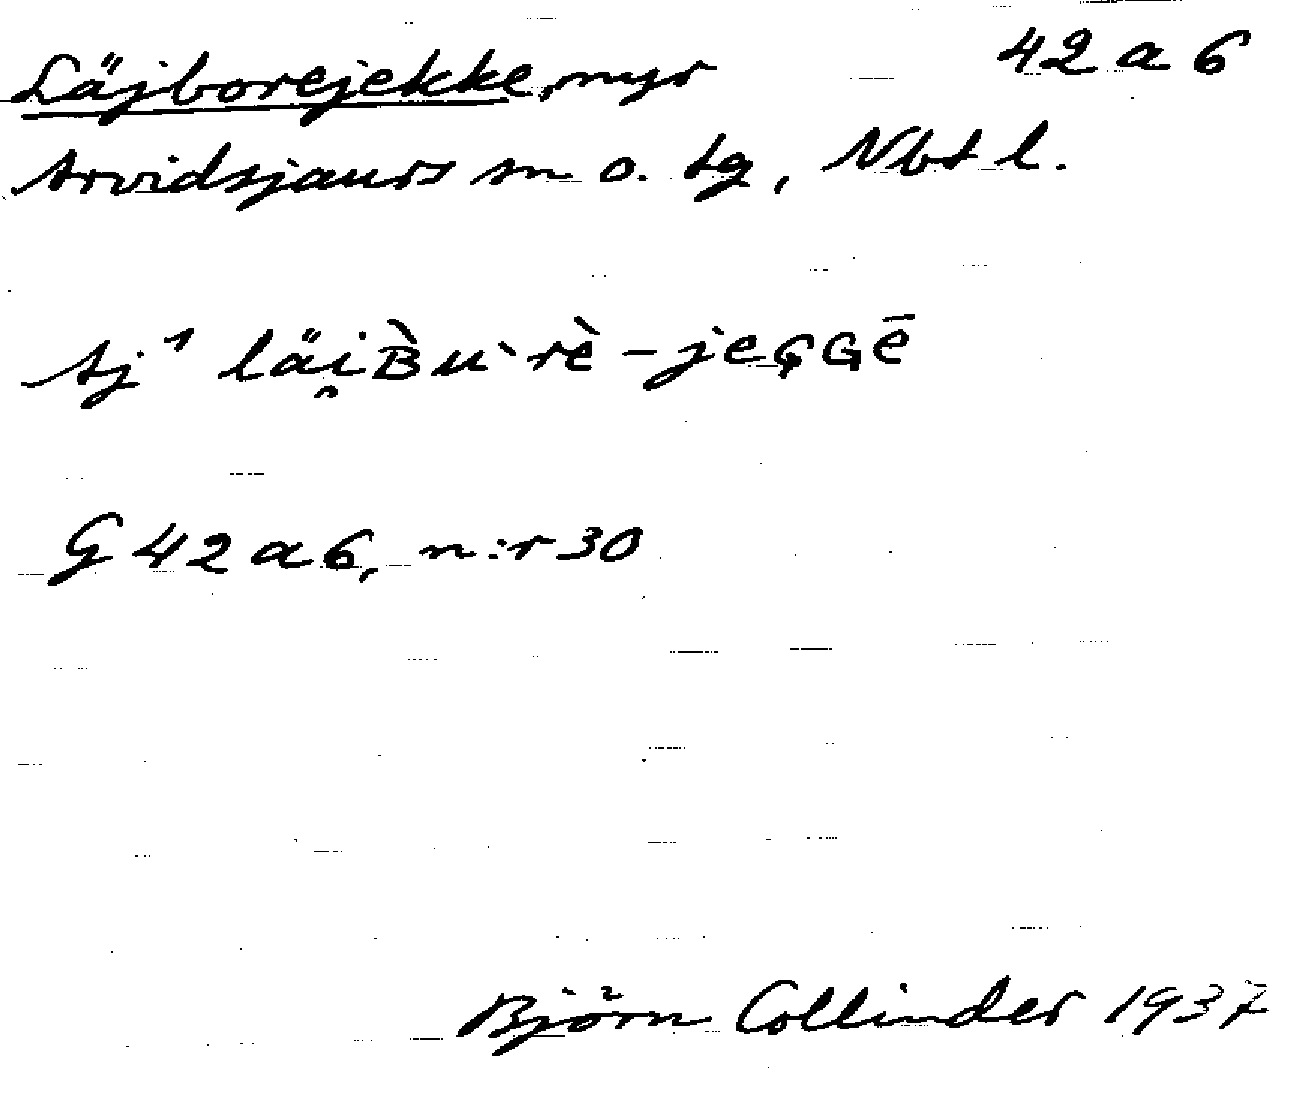 Läjborejekke, myr 42 a 6
Arvidsjaurs sn o. tg, Nbt l.
Aj¹ läi̯B̀u`rè-jeGGē
G 42 a 6, n:r 30
Björn Collinder 1937